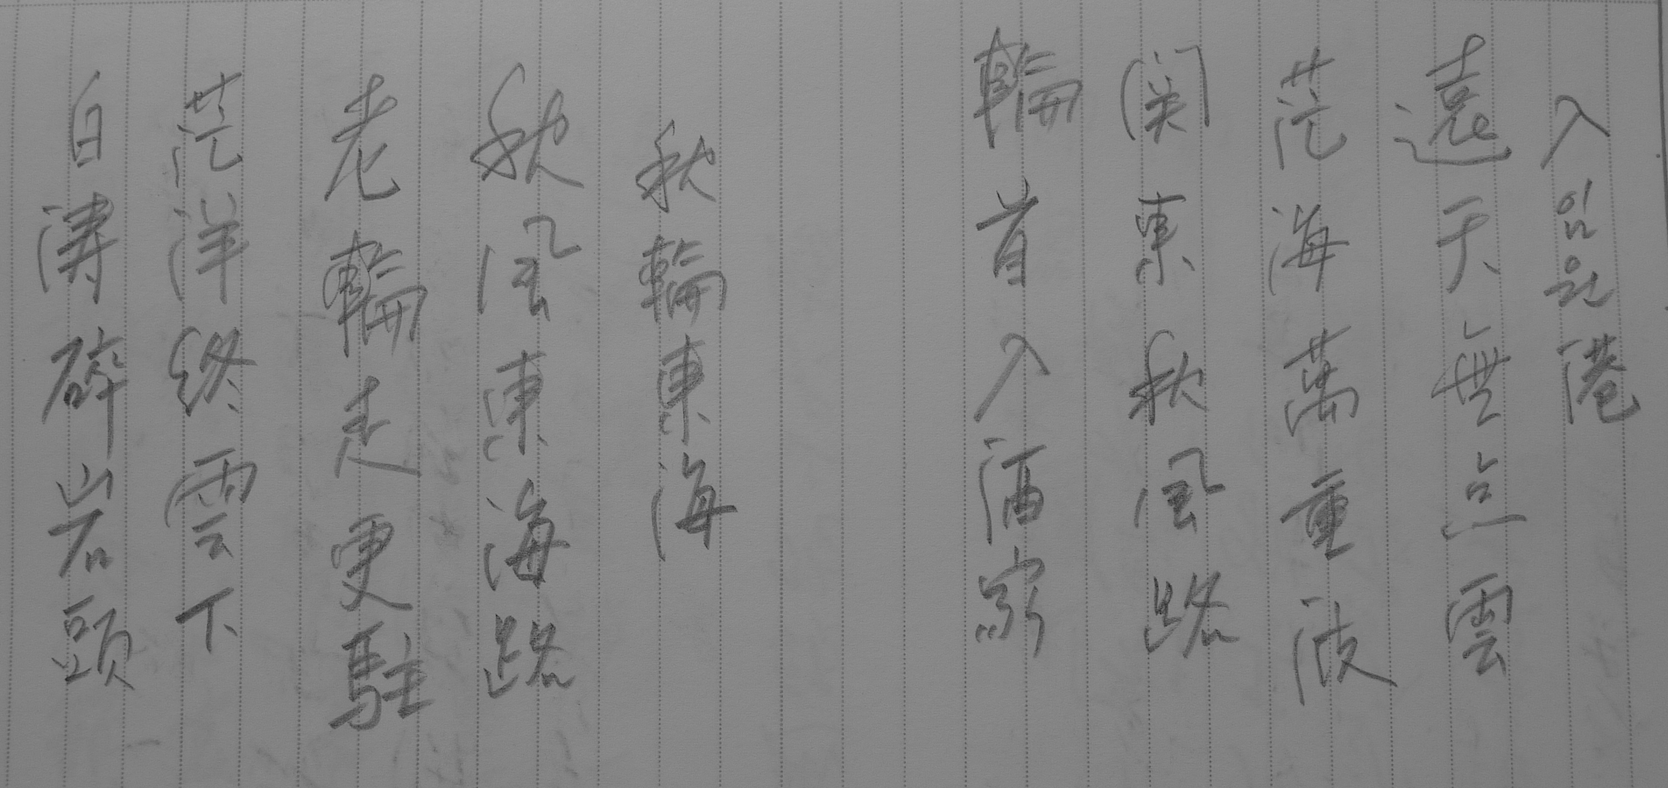 入임원港
遠天無点雲
茫海萬重波
関東秋風路
輪首入酒家
秋輪東海
秋風東海路
老輪走更駐
茫洋終雲下
白涛碎岩頭